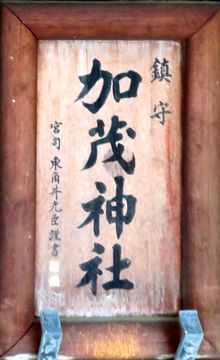 鎮守
加茂神社
宮司 東角井光臣謹書